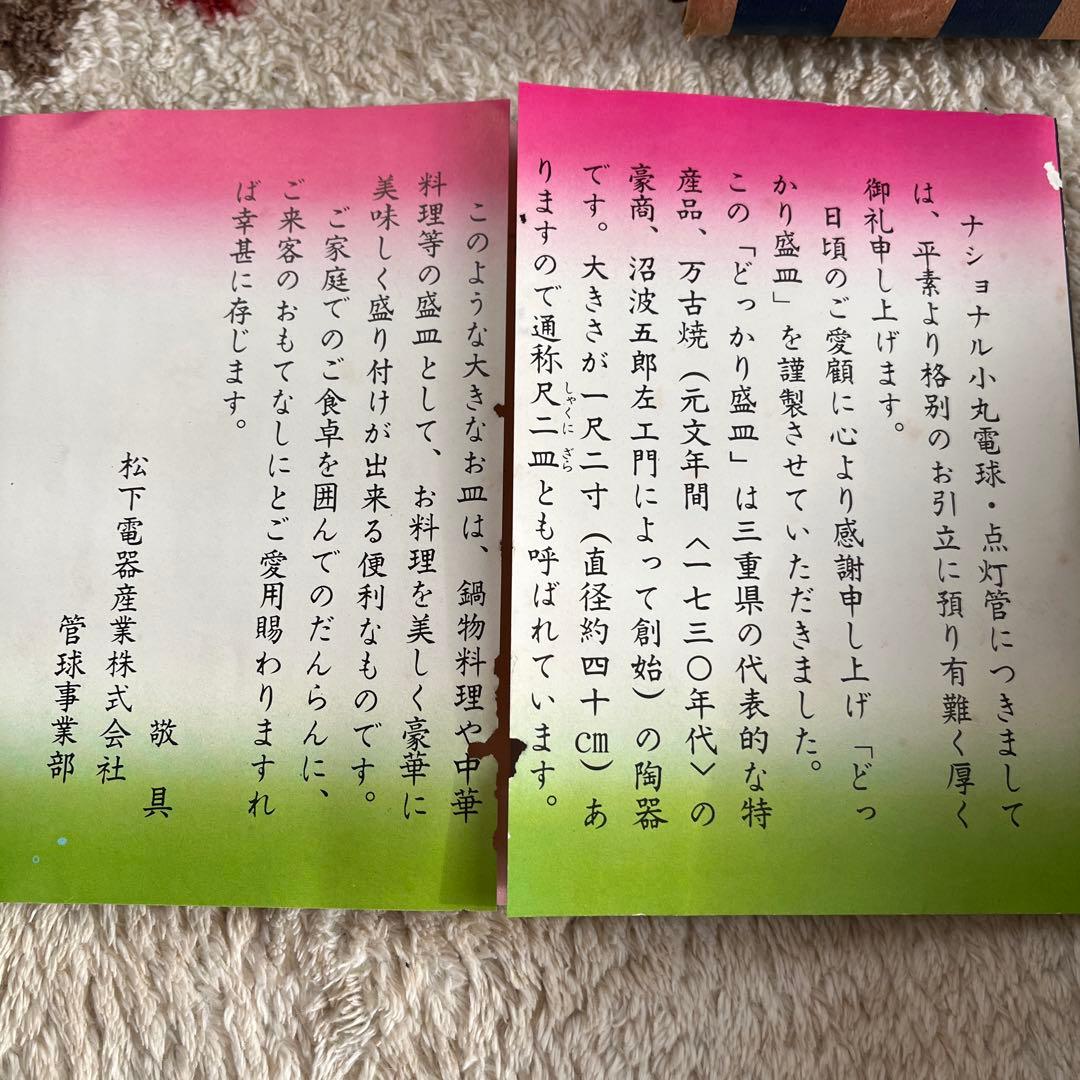 ナショナル小丸電球・点灯管につきまして
は、平素より格別のお引立に預り有難く厚く
御礼申し上げます。
日頃のご愛顧に心より感謝申し上げ「どっ
かり盛皿」を謹製させていただきました。
この「どっかり盛皿」は三重県の代表的な特
産品、万古焼（元文年間〈一七三〇年代〉の
豪商、沼波五郎左エ門によって創始）の陶器
です。大きさが一尺二寸（直径約四十cm）あ
りますので通称尺二皿とも呼ばれています。
しゃくに ざら
このような大きなお皿は、鍋物料理や中華
料理等の盛皿として、お料理を美しく豪華に
美味しく盛り付けが出来る便利なものです。
ご家庭でのご食卓を囲んでのだんらんに、
ご来客のおもてなしにとご愛用賜わりますれ
ば幸甚に存じます。
敬具
松下電器産業株式会社
管球事業部